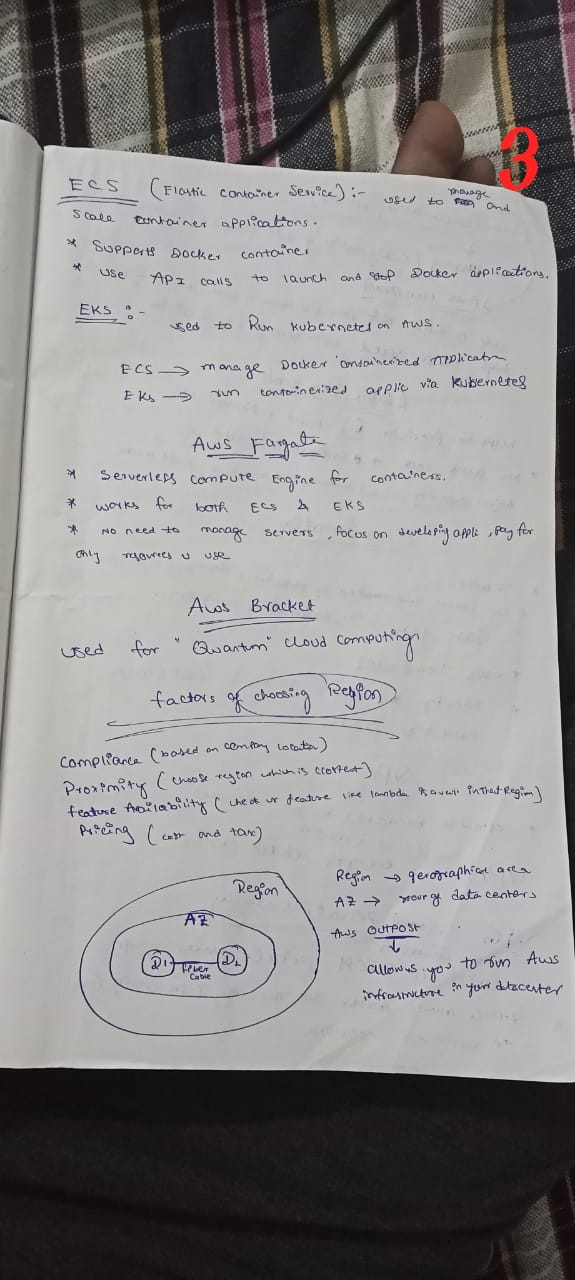 3
ECS (Elastic Container Service) :- used to manage and
scale container applications.
* Supports Docker container
* use API calls to launch and stop Docker applications.
EKS :-
used to Run kubernetes on AWS.
ECS → manage Docker containerized Applicatn
EKs → run containerized applic via kubernetes
Aws Fargate
* Serverless compute Engine for containers.
* works for both ECS & EKS
* No need to manage servers, focus on developing appli, pay for
only resources u use
Aws Bracket
used for "Quantum" cloud computing
factors of choosing Region
Compliance (based on company location)
Proximity (choose region which is closest)
feature Availability (check ur feature like lambda is avail in that Region)
Pricing (cost and tax)
Region
AZ
D1 D2
Fiber
Cable
Region → geographical area
AZ → of data centers
Aws OUTPOST
↓
allows you to run Aws
infrastructure in your datacenter